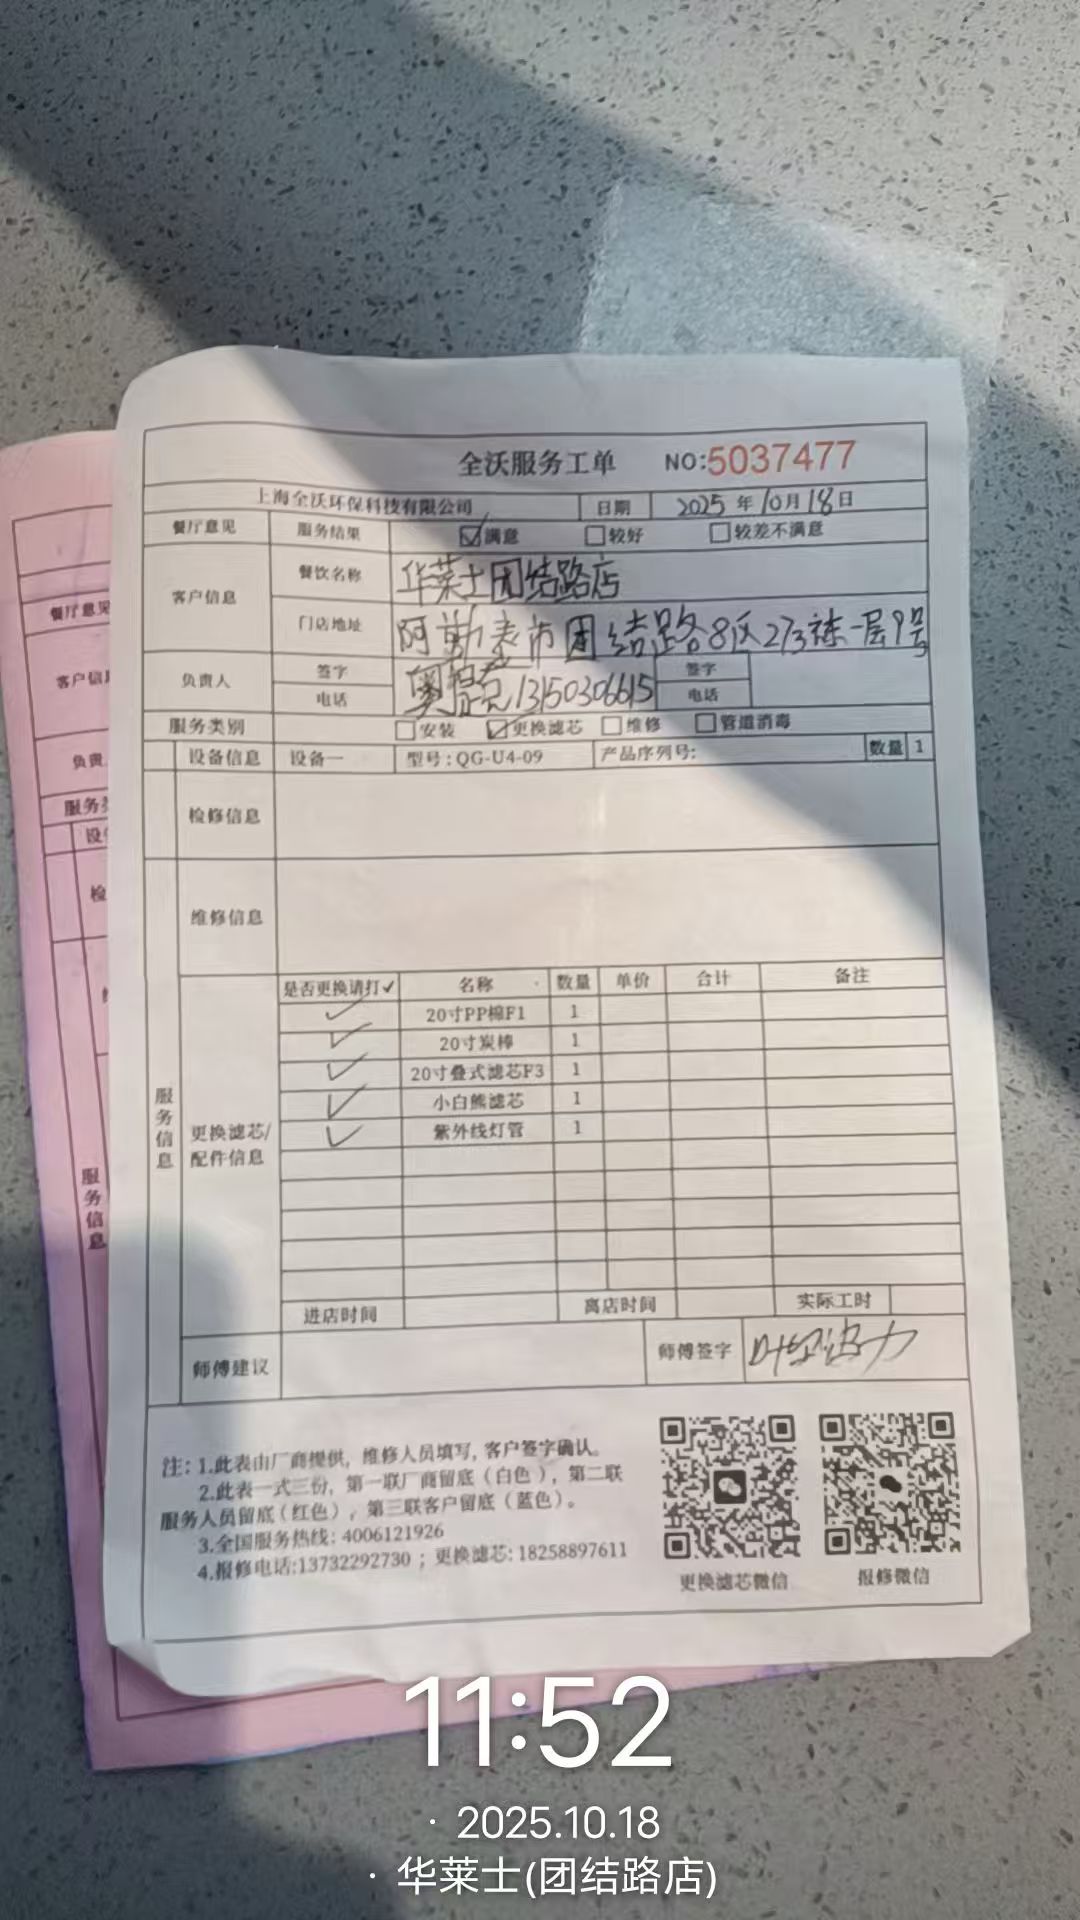 全沃服务工单 NO:5037477
上海全沃环保科技有限公司 日期 2025年10月18日
餐厅意见 服务结果 ☑满意 □较好 □较差不满意
客户信息 餐饮名称 华莱士团结路店
门店地址 阿勒泰市团结路8区273栋一层9号
负责人 签字 签字
电话 13150306615 电话
服务类别 □安装 ☑更换滤芯 □维修 □管道消毒
设备信息 设备一 型号:QG-U4-09 产品序列号: 数量 1
检修信息
维修信息
服务信息
更换滤芯/配件信息
是否更换请打✓ 名称 数量 单价 合计 备注
✓ 20寸PP棉F1 1
✓ 20寸炭棒 1
✓ 20寸叠式滤芯F3 1
✓ 小白熊滤芯 1
✓ 紫外线灯管 1
进店时间 离店时间 实际工时
师傅建议 师傅签字
注: 1.此表由厂商提供, 维修人员填写, 客户签字确认。
2.此表一式三份, 第一联厂商留底(白色), 第二联
服务人员留底(红色), 第三联客户留底(蓝色)。
3.全国服务热线: 4006121926
4.报修电话:13732292730 ; 更换滤芯: 18258897611
更换滤芯微信 报修微信
餐厅意见
客户信
负责
服务
设
检
服务信息
11:52
· 2025.10.18
· 华莱士(团结路店)